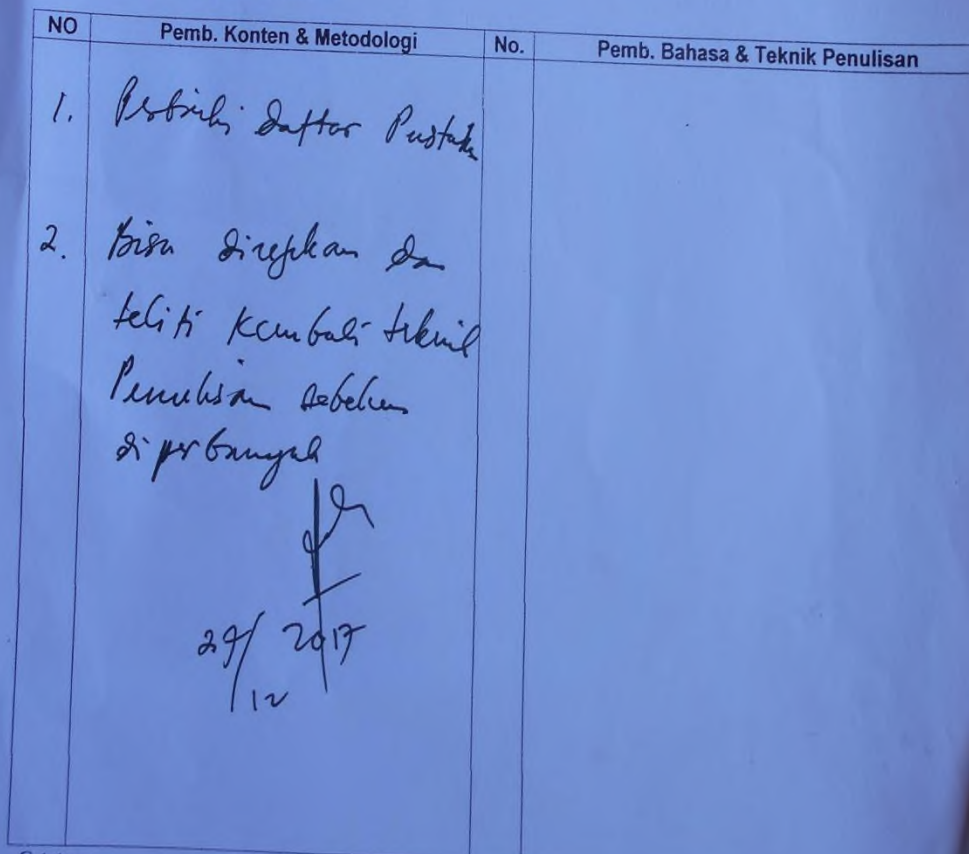 NO Pemb. Konten & Metodologi No. Pemb. Bahasa & Teknik Penulisan
1. Perbaiki Daftar Pustaka
2. Bisa dan
teliti kembali teknik
Penulisan sebelum
diperbanyak
29/12 2017